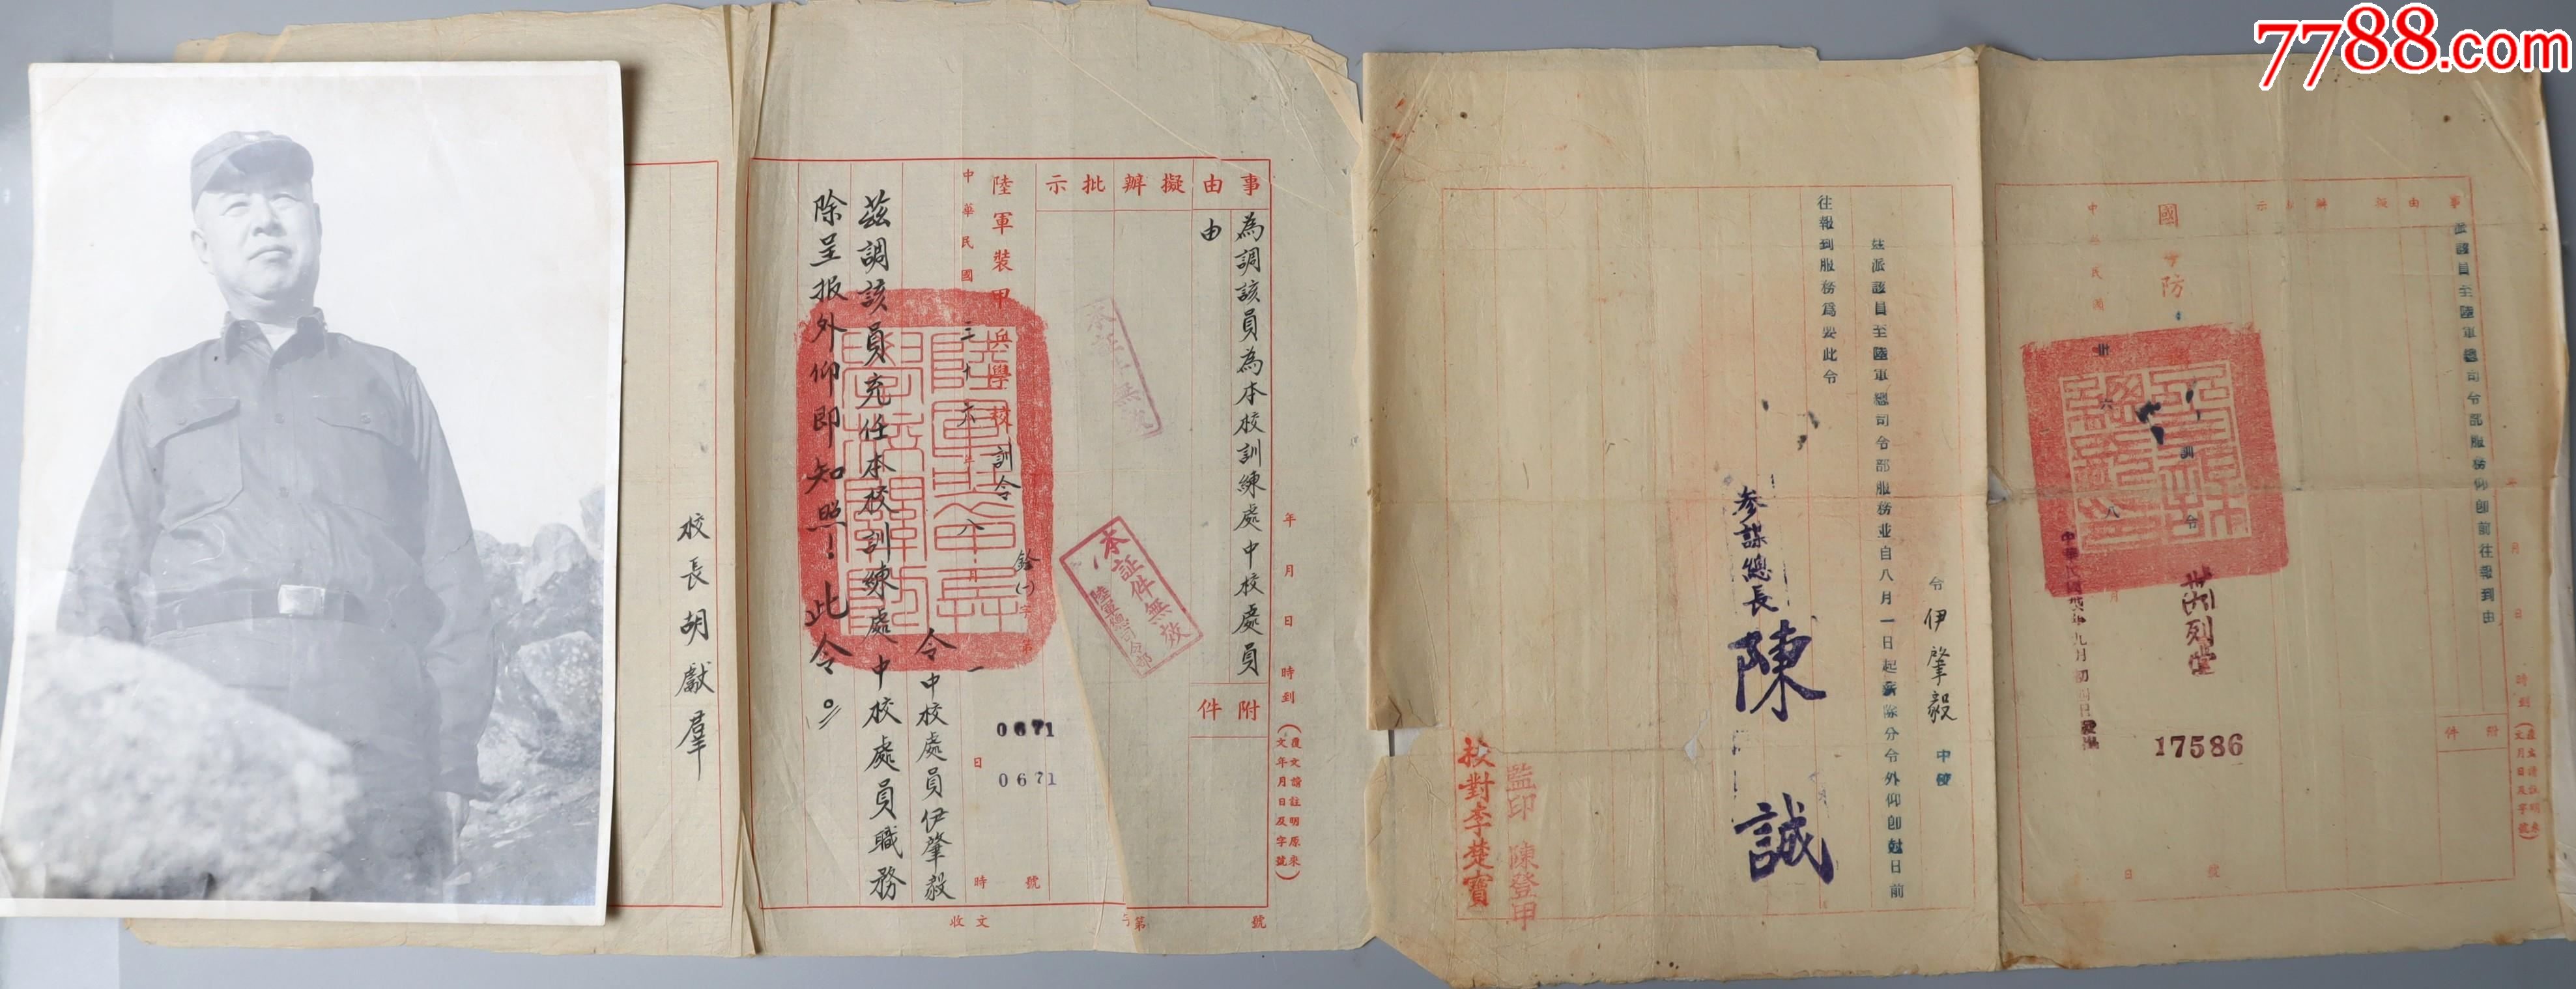 7788.com
事由擬辦批示
附件
為調該員為本校訓練處中校處員
由
年月日時到
(復文請註明原來
文年月日及字號)
本証件無效
陸軍總司令部
陸軍裝甲兵學校訓令
銓(一)字第
0671
0671
號
中華民國三十六年八月一日
時
令中校處員伊肇毅
茲調該員充任本校訓練處中校處員職務
除呈报外仰即知照!此令。
校長胡獻羣
收文
字第
號
事由擬辦
示
附件
派該員至陸軍總司令部服務仰卽前往報到由
月日時到
國防
訓令
17586
號
中華民國卅六
八月
日
令伊肇毅中校
茲派該員至陸軍總司令部服務並自八月一日起薪除分令外仰卽尅日前
往報到服務爲要此令
參謀總長陳誠
監印陳登甲
校對李楚寶